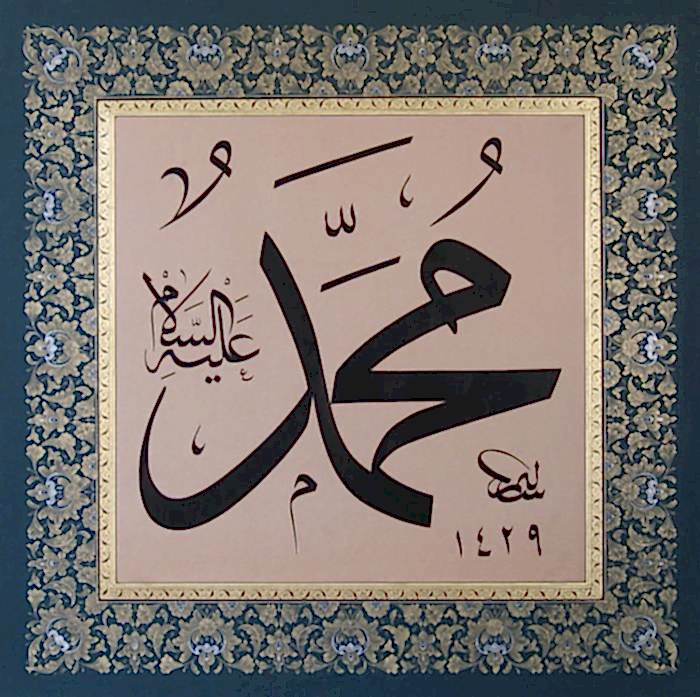 مُحَمَّدٌ
عَلَيْهِ السَّلَامُ
١٤٢٩